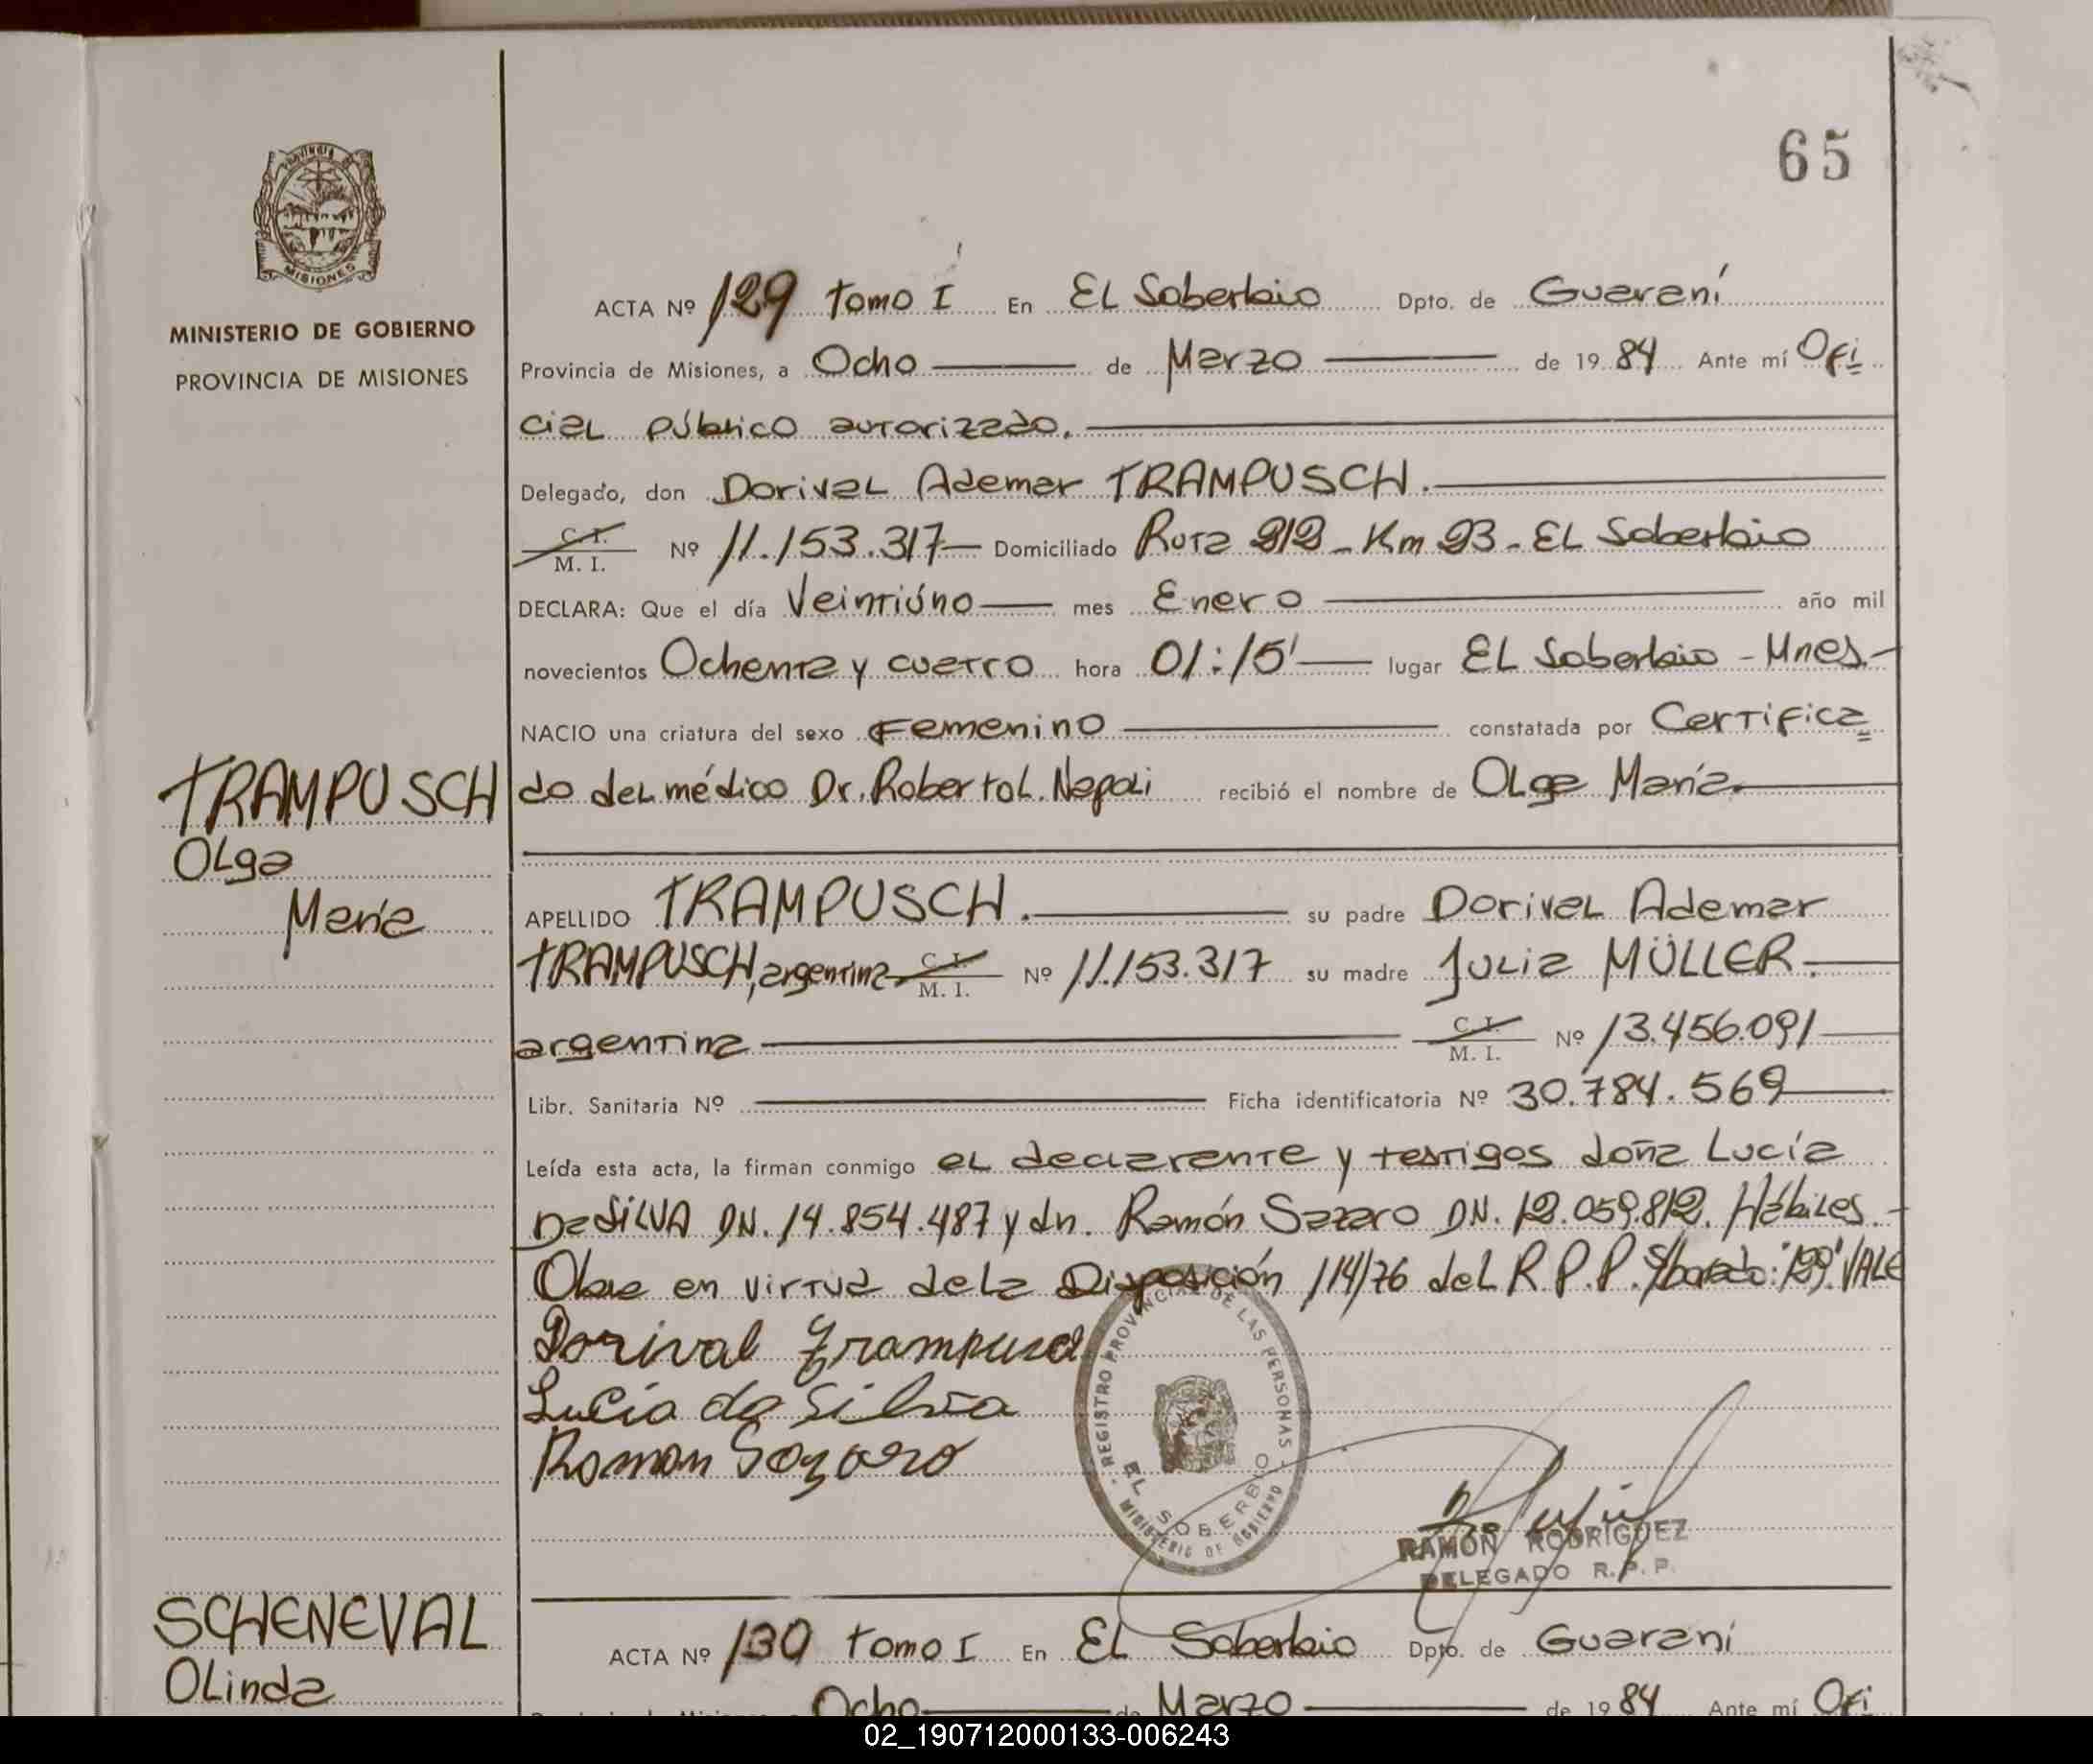 65
MINISTERIO DE GOBIERNO
PROVINCIA DE MISIONES
ACTA Nº 129 Tomo I En EL Soberbio Dpto. de Guaraní
Provincia de Misiones, a Ocho de Marzo de 1984 Ante mí Ofi
cial público autorizado.
Delegado, don Dorival Ademar TRAMPUSCH.
C. I. M. I. Nº 11.153.317 Domiciliado Ruta 212 - Km 23 - EL Soberbio
DECLARA: Que el día Veintiúno mes Enero año mil
novecientos Ochenta y cuatro hora 01:15' lugar EL Soberbio - Mnes.-
NACIO una criatura del sexo Femenino constatada por Certifica
do del médico Dr. Roberto L. Napoli recibió el nombre de Olga María.
TRAMPUSCH
Olga
María
APELLIDO TRAMPUSCH. su padre Dorival Ademar
TRAMPUSCH, argentina C. I. M. I. Nº 11.153.317 su madre Julia MÜLLER.
argentina C. I. M. I. Nº 13.456.091
Libr. Sanitaria Nº Ficha identificatoria Nº 30.784.569
Leída esta acta, la firman conmigo el declarante y testigos doña Lucía
Da SILVA DN. 14.854.487 y dn. Ramón Sazaro DN. 12.059.812. Hábiles.-
Obra en virtud de la Disposición 114/76 del R.P.P. S/borrado: "129" VALE
Dorival Trampusch
Lucia da Silva
Ramon Sozaro
REGISTRO PROVINCIAL DE LAS PERSONAS
EL SOBERBIO
MINISTERIO DE GOBIERNO
RAMON RODRIGUEZ
DELEGADO R. P. P.
SCHENEVAL
Olinda
ACTA Nº 130 Tomo I En EL Soberbio Dpto. de Guaraní
Ocho de Marzo de 1984 Ante mí Ofi
02_190712000133-006243